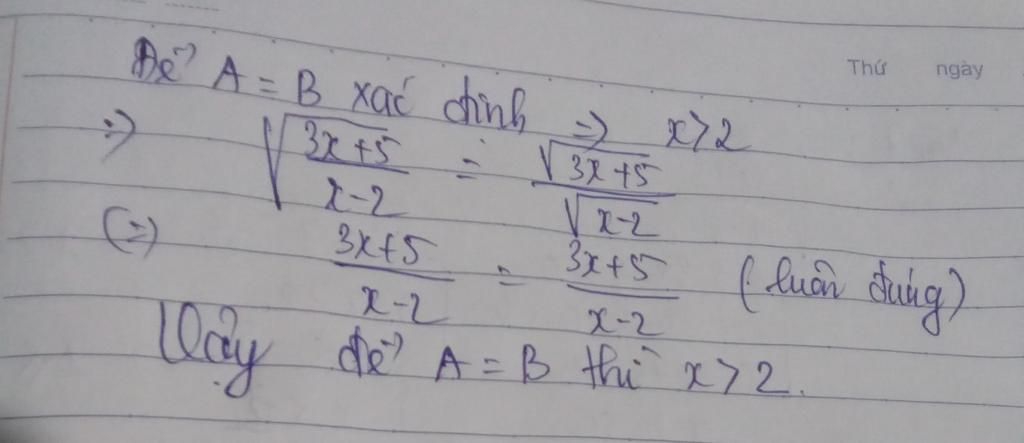 Thứ ngày
Để A = B xác định => x>2
=> √((3x+5)/(x-2)) = √(3x+5)/√(x-2)
(=) (3x+5)/(x-2) = (3x+5)/(x-2) (luôn đúng)
Vậy để A = B thì x > 2.